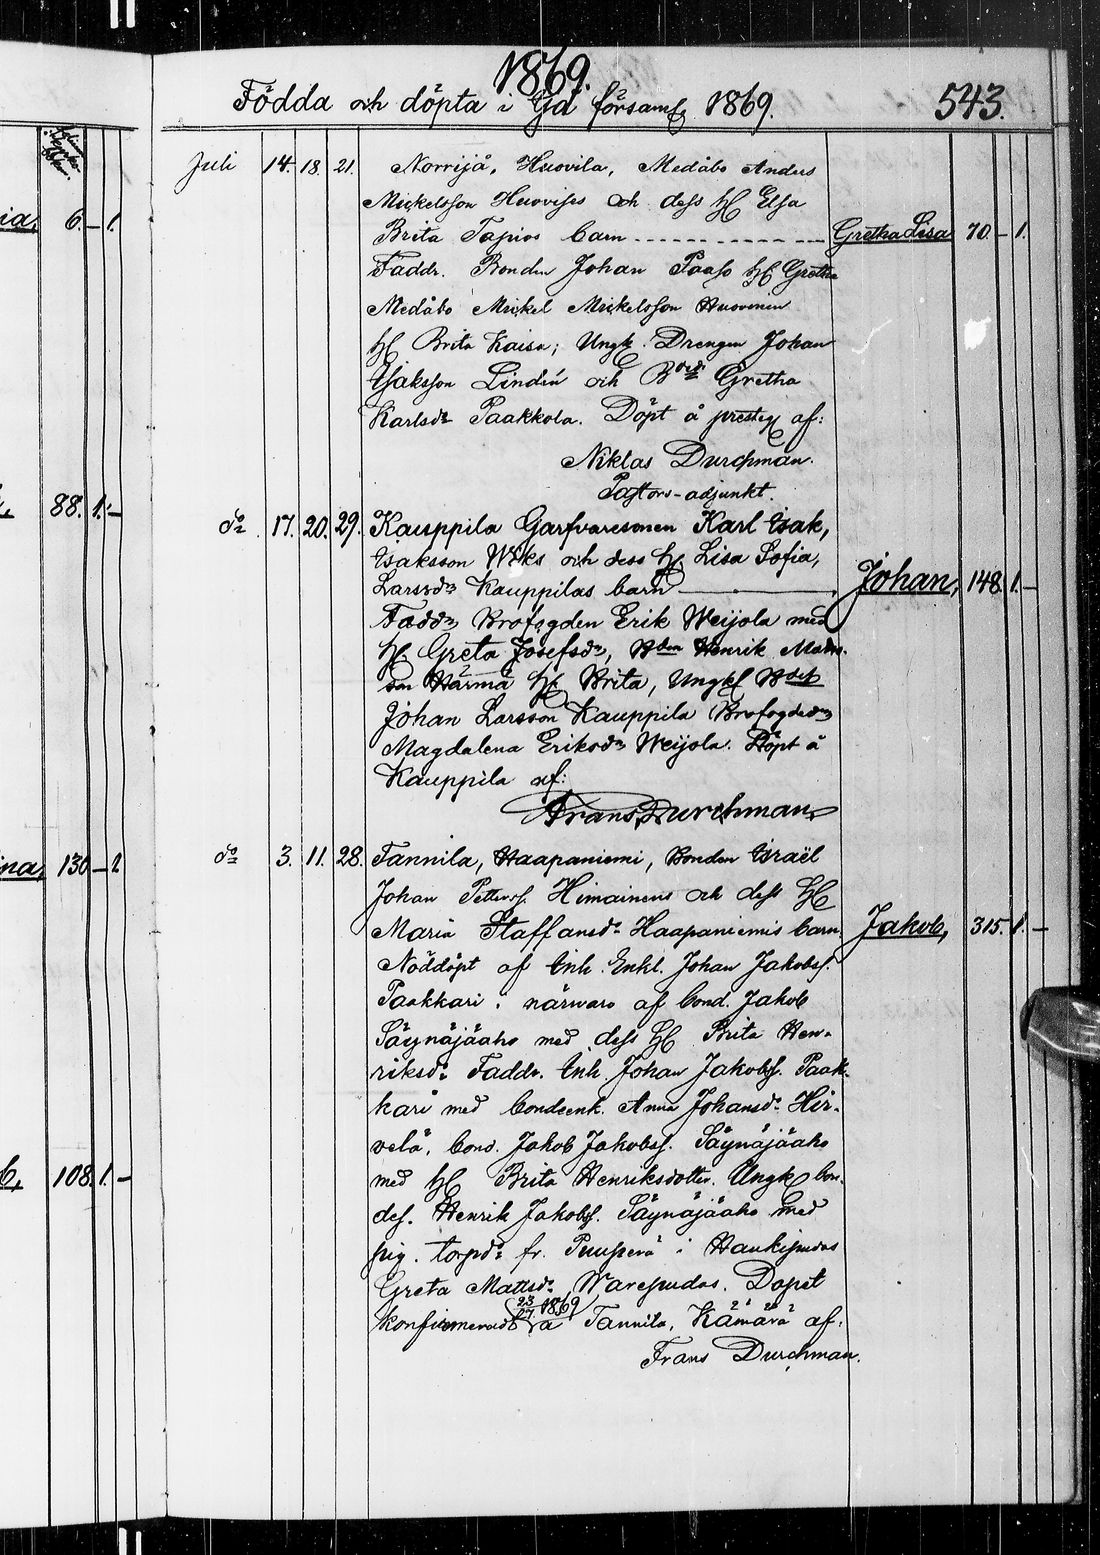 1869.
Födda och döpta i Ijå församlg 1869. 543.
Juli 14. 18. 21. Norrijå, Huovila, Medåbo Anders
Mickelsson Huovises och dess H. Elsa
Brita Tapios barn Gretha Lisa 70 - 1.
Faddr. Bonden Johan Paaso H. Gretha
Medåbo Mickel Mickelsson Huovinen
H. Brita Kaisa; Ungk. Drengen Johan
Isaksson Lindén och Gretha
Karlsdr Paakkola. Döpt å prestg af:
Niklas Durchman.
Pastors-adjunkt.
do 17. 20. 29. Kauppila Garfvaresonen Karl Isak,
Isaksson Wiks och dess H. Lisa Sofia,
Larsdr Kauppilas barn Johan, 148. 1. -
Faddr, Brofogden Erik Weijola med
H. Greta Josefsdr, Bden Henrik Matts-
son Härmä H. Brita, Ungk
Johan Larsson Kauppila Brofogdedr
Magdalena Eriksdr Weijola. Döpt å
Kauppila af:
Frans Durchman
do 3. 11. 28. Tannila, Haapaniemi, Bonden Israël
Johan Petterss. Himainens och dess H.
Maria Staffansdr Haapaniemis barn Jakob, 315. 1. -
Nöddöpt af Inh. Enkl. Johan Jakobss.
Paakkari i närwaro af bond. Jakob
Säynäjäaho med dess H. Brita Hen-
riksdr Faddr. Inh. Johan Jakobss. Paak-
kari med bondeenk. Anna Johansdr Hir-
velä, bond. Jakob Jakobss. Säynäjäaho
med H. Brita Henriksdotter. Ungk bon-
des. Henrik Jakobss. Säynäjäaho med
pig. torpdr fr. Puuperä i Haukipudas
Greta Mattsdr Warespudas. Dopet
konfirmeradt 23/7 1869 å Tannila, Kämärä af:
Frans Durchman.
ia, 6. - 1.
88. 1. -
ina, 130 - 1
b, 108. 1. -